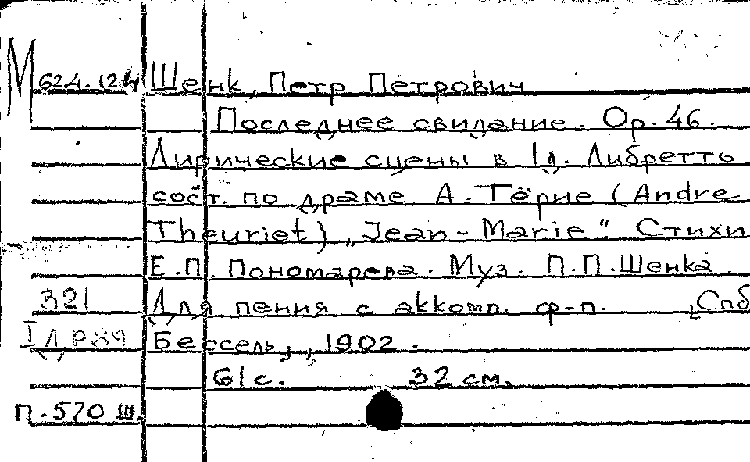 М 624.124 Шенк, Петр Петрович
Последнее свидание. Op. 46.
Лирические сцены в 1 д. Либретто
сост. по драме А. Тёрие (Andre
Theuriet) „Jean-Marie" Стихи
Е.П. Пономарева. Муз. П.П. Шенка
321 Для пения с аккомп. ф-п. Спб
Бессель, 1902.
61 с. 32 см.
П.-570 ш.